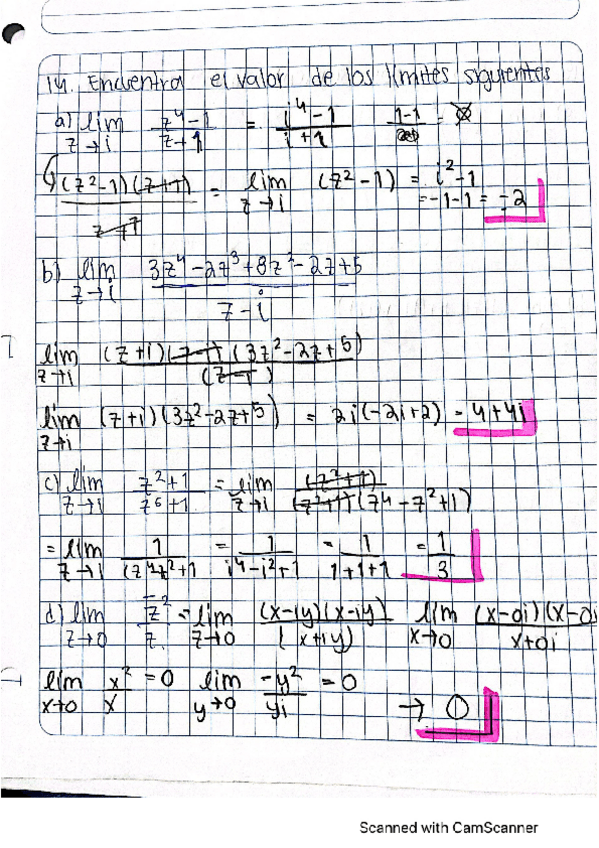 14. Encuentra el valor de los límites siguientes
a) lim z→i (z⁴-1)/(z+1) = (i⁴-1)/(i+1) (1-1)/ =
(z²-1)(z+1)/(z+1) = lim z→i (z²-1) = i²-1
= -1-1 = -2
b) lim z→i (3z⁴-2z³+8z²-2z+5)/(z-i)
lim z→i (z+i)(z-i)(3z²-2z+5)/(z-i)
lim z→i (z+i)(3z²-2z+5) = 2i(-2i+2) = 4+4i
c) lim z→i (z²+1)/(z⁶+1) = lim z→i (z²+1)/(z²+1)(z⁴-z²+1)
= lim z→i 1/(z⁴-z²+1 = 1/(i⁴-i²+1) = 1/(1+1+1) = 1/3
d) lim z→0 z̄²/z = lim z→0 (x-iy)(x-iy)/(x+iy) lim x→0 (x-0i)(x-0i/(x+0i)
lim x→0 x²/x = 0 lim y→0 -y²/yi = 0 → 0
Scanned with CamScanner